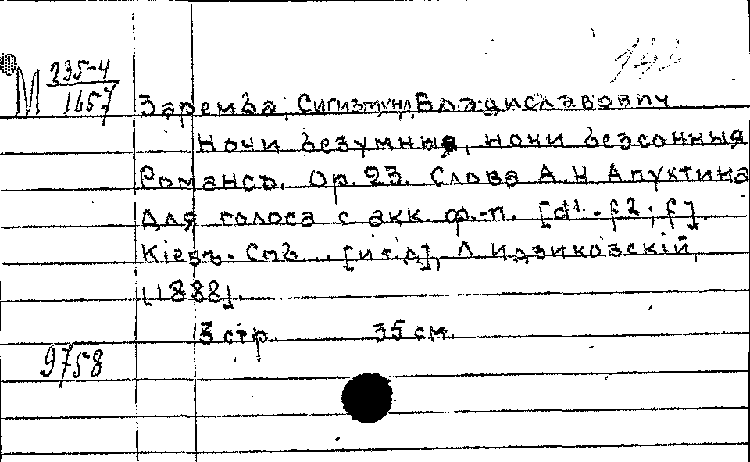 М 335-4
1657
Заремба, Сигизмунд Владиславович
Ночи безумныя, ночи безсонныя
Романсъ. Op. 23. Слова А. Н Апухтина
для голоса с акк ф.-п. [d¹-f2; f].
Кіевъ-Спб. [и т.д], Л Идзиковскій,
[1888].
3 стр. 35 см.
9758